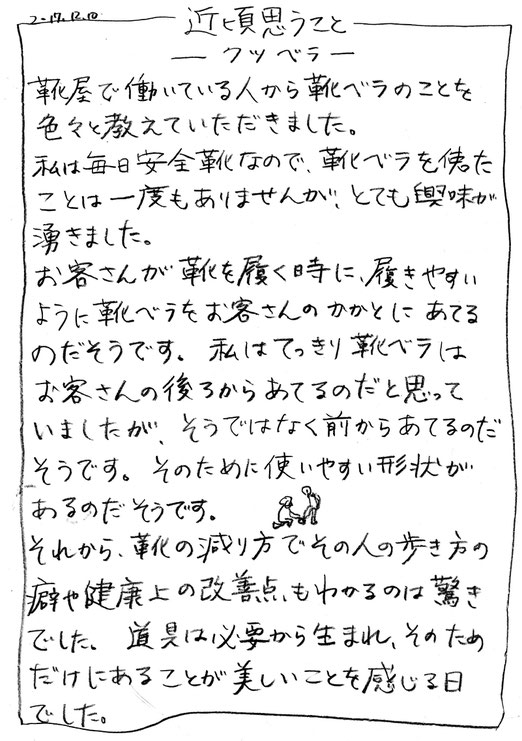 2017.12.10
近頃思うこと
― クツベラ ―
靴屋で働いている人から靴ベラのことを
色々と教えていただきました。
私は毎日安全靴なので、靴ベラを使った
ことは一度もありませんが、とても興味が
湧きました。
お客さんが靴を履く時に、履きやすい
ように靴ベラをお客さんのかかとにあてる
のだそうです。私はてっきり靴ベラは
お客さんの後ろからあてるのだと思って
いましたが、そうではなく前からあてるのだ
そうです。そのために使いやすい形状が
あるのだそうです。
それから、靴の減り方でその人の歩き方の
癖や健康上の改善点もわかるのは驚き
でした。道具は必要から生まれ、そのため
だけにあることが美しいことを感じる日
でした。